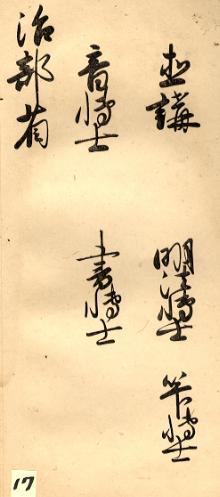 直講 明法博士 笇博士
音博士 書博士
治部省
17